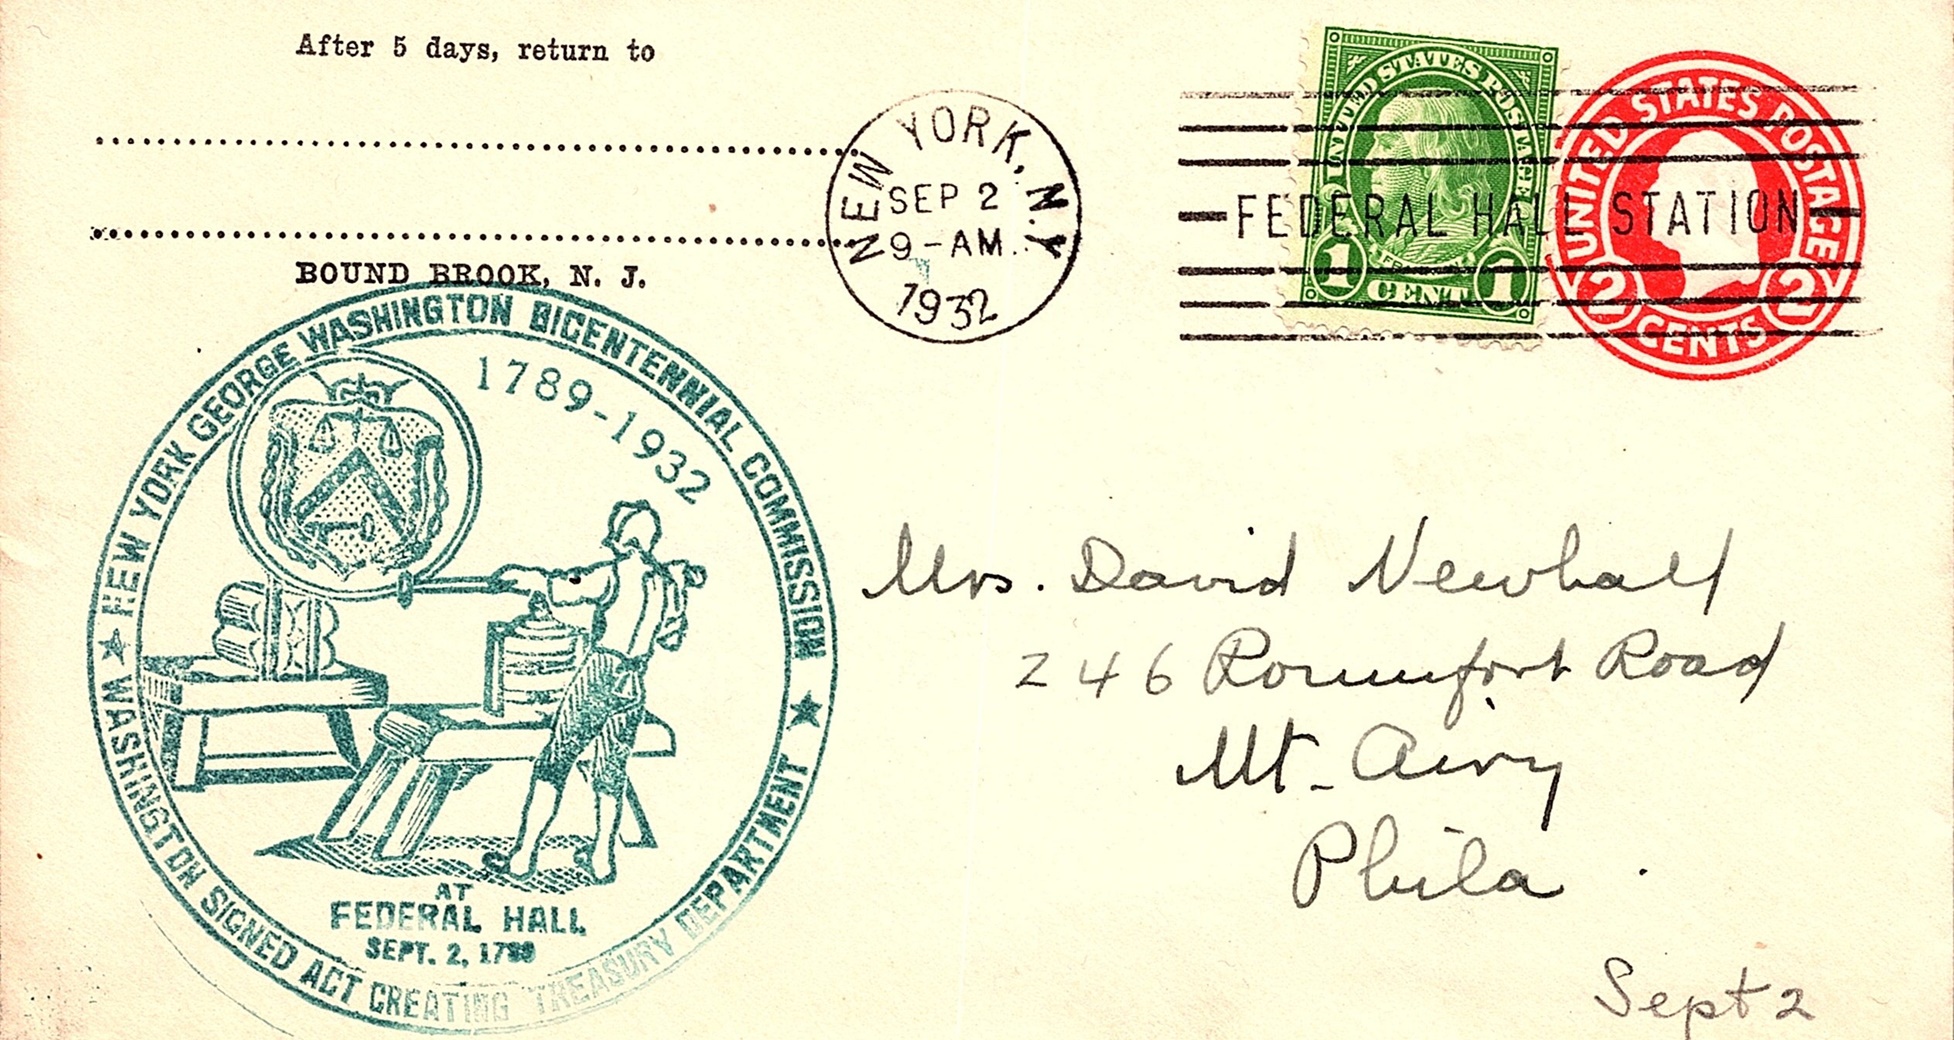 After 5 days, return to
BOUND BROOK, N. J.
NEW YORK, N.Y.
SEP 2
9-AM.
1932
FEDERAL HALL STATION
UNITED STATES POSTAGE
1 CENT 1
UNITED STATES POSTAGE
2 CENTS 2
NEW YORK GEORGE WASHINGTON BICENTENNIAL COMMISSION
1789-1932
AT
FEDERAL HALL
SEPT. 2, 1789
WASHINGTON SIGNED ACT CREATING TREASURY DEPARTMENT
Mrs. David Newhall
246 Roumfort Road
Mt. Airy
Phila
Sept 2